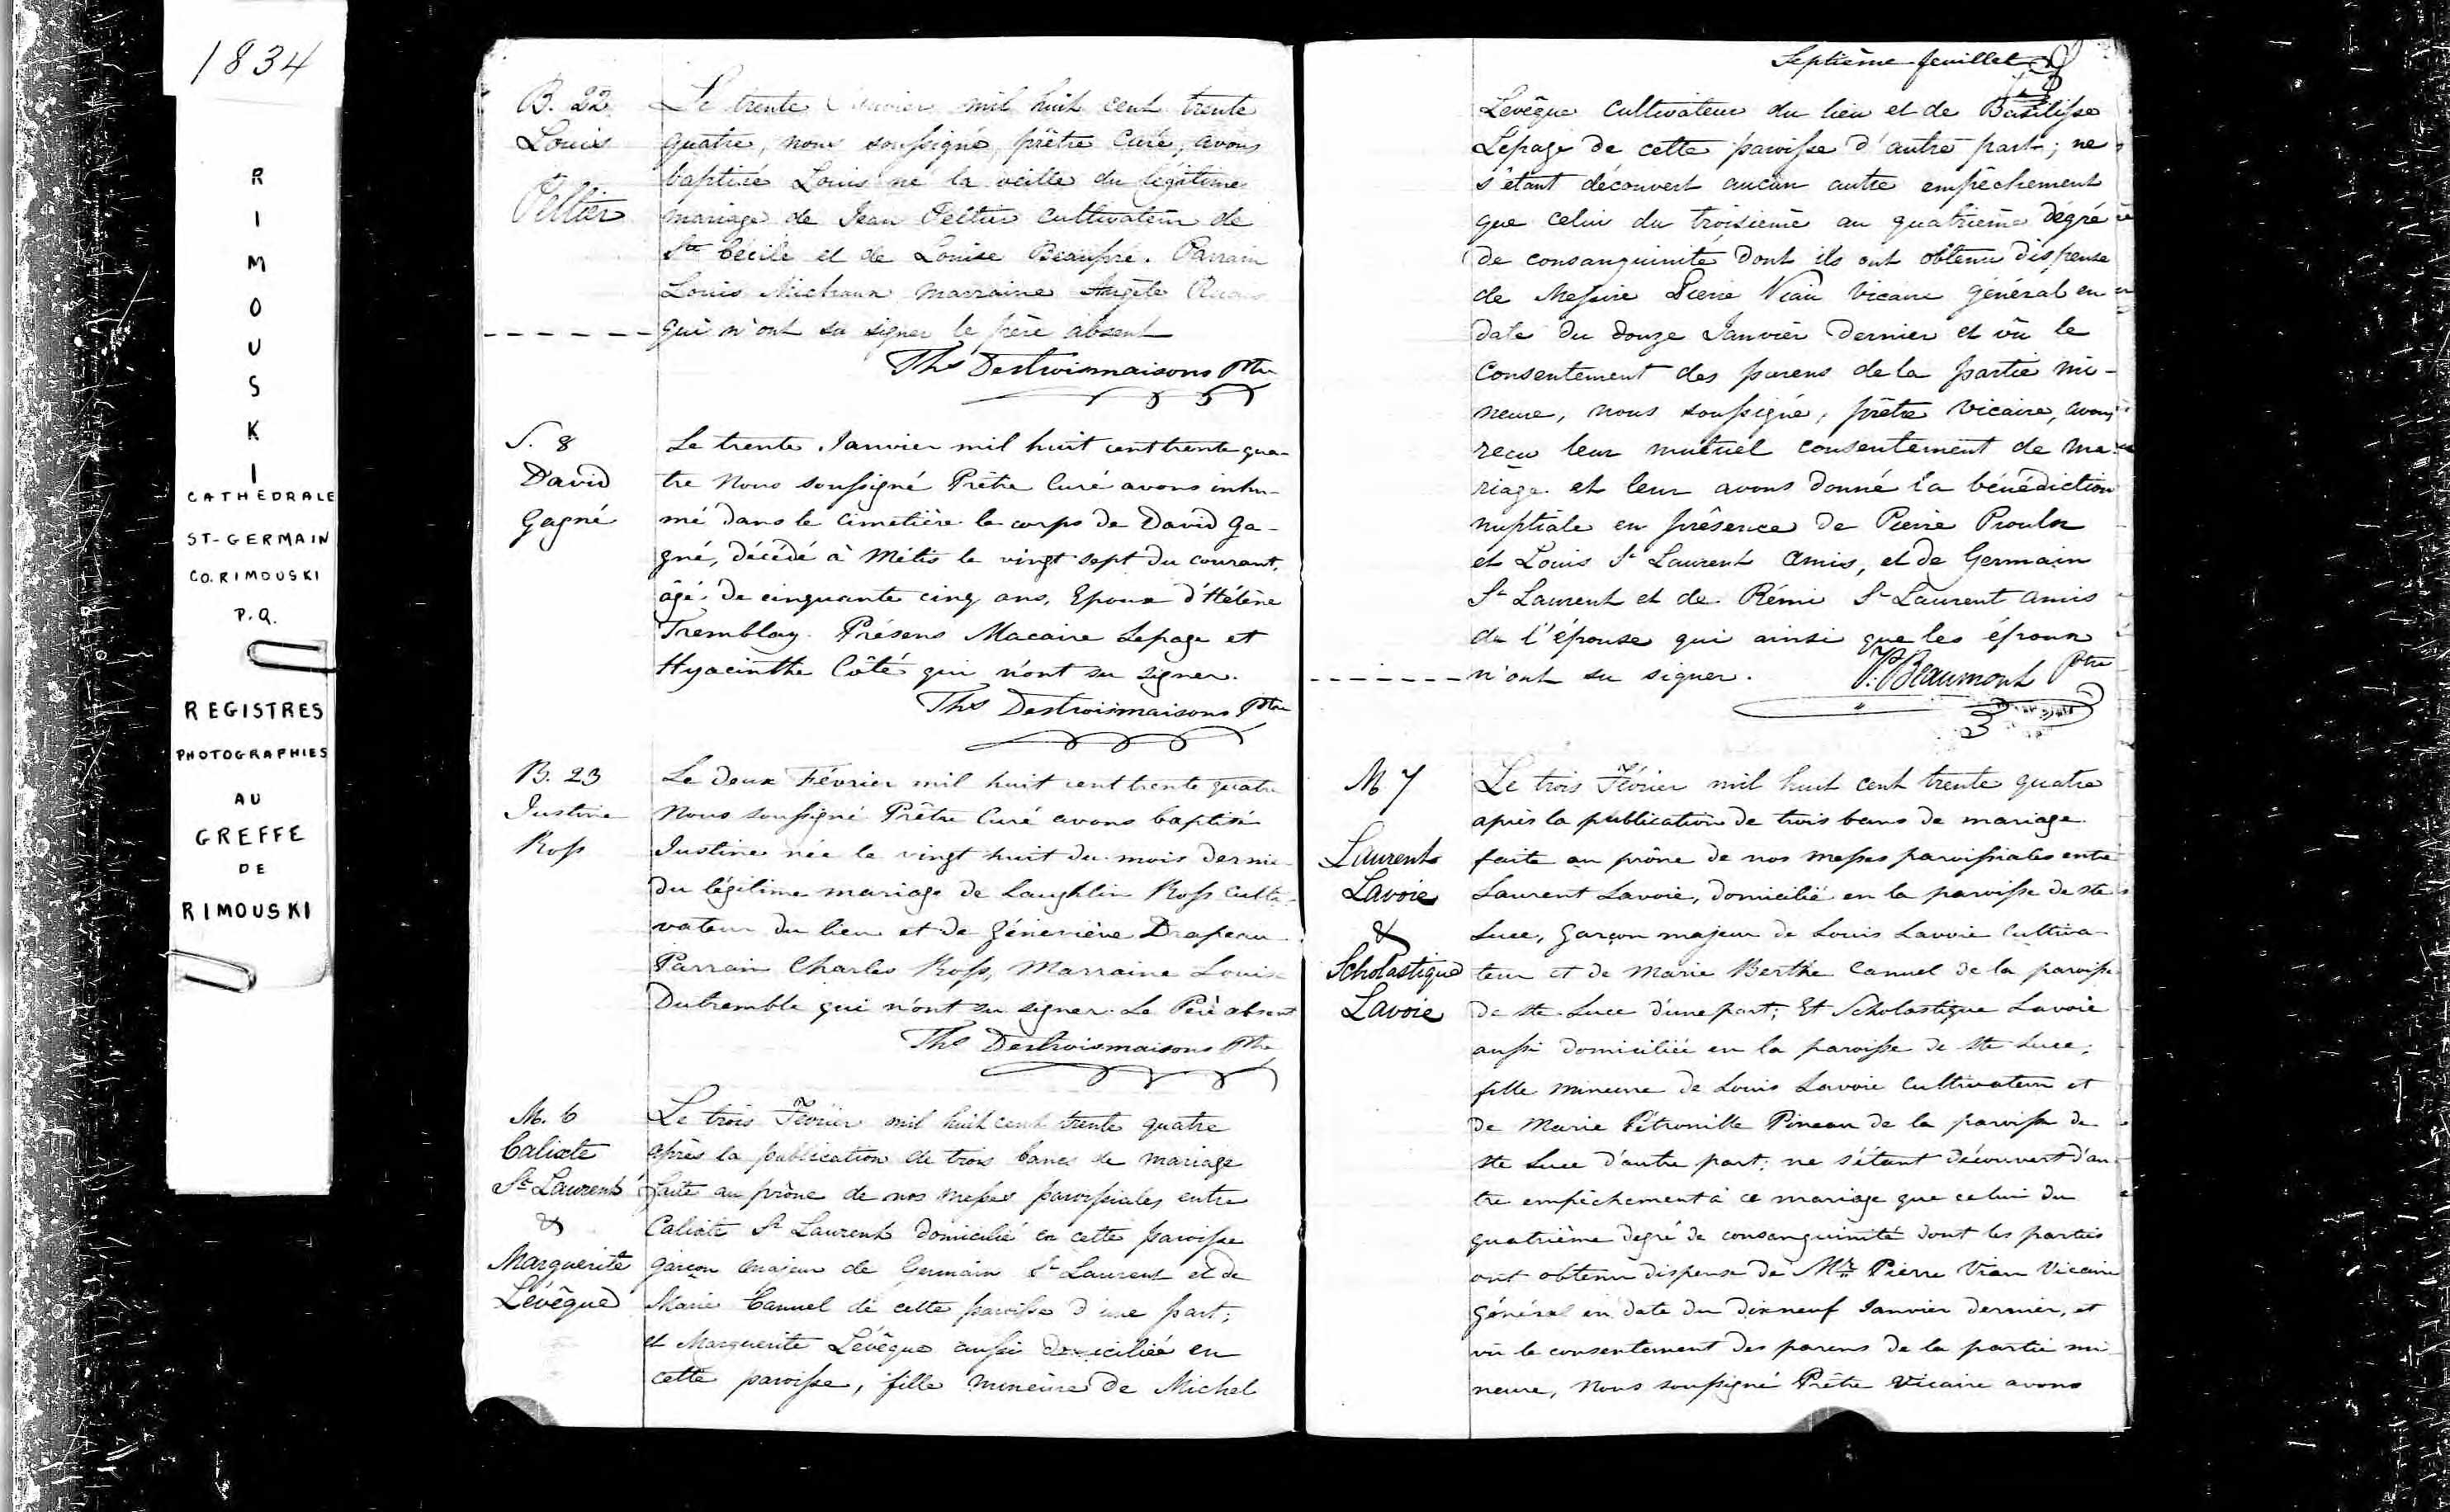 1834
R
I
M
O
U
S
K
I
CATHEDRALE
ST-GERMAIN
CO. RIMOUSKI
P.Q.
REGISTRES
PHOTOGRAPHIES
AU
GREFFE
DE
RIMOUSKI
B. 22
Louis
Peltier
Le trente Janvier mil huit cent trente
quatre, nous soussigné, prêtre Curé, avons
baptisé Louis né la veille du légitime
mariage de Jean Peltier cultivateur de
Ste Cécile et de Louise Beaupré. Parrain
Louis Michaux marraine Angèle
qui n'ont su signer le père absent
Ths Destroismaisons Ptre
S. 8
David
Gagné
Le trente Janvier mil huit cent trente qua-
tre Nous soussigné Prêtre Curé avons inhu-
mé dans le cimetière le corps de David Ga-
gné, décédé à Métis le vingt sept du courant,
âgé de cinquante cinq ans, Epoux d'Hélène
Tremblay. Présens Macaire Lepage et
Hyacinthe Côté qui n'ont su signer.
Ths Destroismaisons Ptre
B. 23
Justine
Ross
Le deux Février mil huit cent trente quatre
Nous soussigné Prêtre Curé avons baptisé
Justine née le vingt huit du mois dernier
du légitime mariage de Laughlin Ross Culti-
vateur du lieu et de Géneviève Drapeau
Parrain Charles Ross, Marraine Louise
Dutremble qui n'ont su signer. Le Père absent
Ths Destroismaisons Ptre
M. 6
Calixte
St Laurent
&
Marguerite
Lévêque
Le trois Février mil huit cent trente quatre
après la publication de trois bancs de mariage
faite au prône de nos messes paroissiales entre
Calixte St Laurent domicilié en cette paroisse
garçon majeur de Germain St Laurent et de
Marie Canuel de cette paroisse d'une part;
et Marguerite Lévêque aussi domiciliée en
cette paroisse, fille mineure de Michel
Septième feuillet
Levêque Cultivateur du lieu et de Basilisse
Lepage de cette paroisse d'autre part; ne
s'étant découvert aucun autre empêchement
que celui du troisième au quatrième dégré
de consanguinité dont ils ont obtenu dispense
de Messire Pierre Viau Vicaire général en
date du douze Janvier dernier et vû le
Consentement des parens de la partie mi-
neure, nous soussigné, prêtre vicaire, avons
reçu leur mutuel consentement de ma-
riage et leur avons donné la bénédiction
nuptiale en présence de Pierre Proulx
et Louis St Laurent amis, et de Germain
St Laurent et de Rémi St Laurent amis
de l'épouse qui ainsi que les époux
n'ont su signer.
P. Beaumont Ptre
M. 7
Laurent
Lavoie
&
Scholastique
Lavoie
Le trois Février mil huit cent trente quatre
après la publication de trois bans de mariage
faite au prône de nos messes paroissiales entre
Laurent Lavoie, domicilié en la paroisse de Ste
Luce, garçon majeur de Louis Lavoie Cultiva-
teur et de Marie Berthe Canuel de la paroisse
de Ste Luce d'une part; Et Scholastique Lavoie
aussi domiciliée en la paroisse de Ste Luce,
fille mineure de Louis Lavoie Cultivateur et
de Marie Pétronille Pineau de la paroisse de
Ste Luce d'autre part; ne s'étant découvert d'au-
tre empêchement à ce mariage que celui du
quatrième degré de consanguinité dont les parties
ont obtenu dispense de Mr Pierre Viau Vicaire
Général en date du dix neuf Janvier dernier, et
vû le consentement des parens de la partie mi-
neure, Nous soussigné Prêtre Vicaire avons